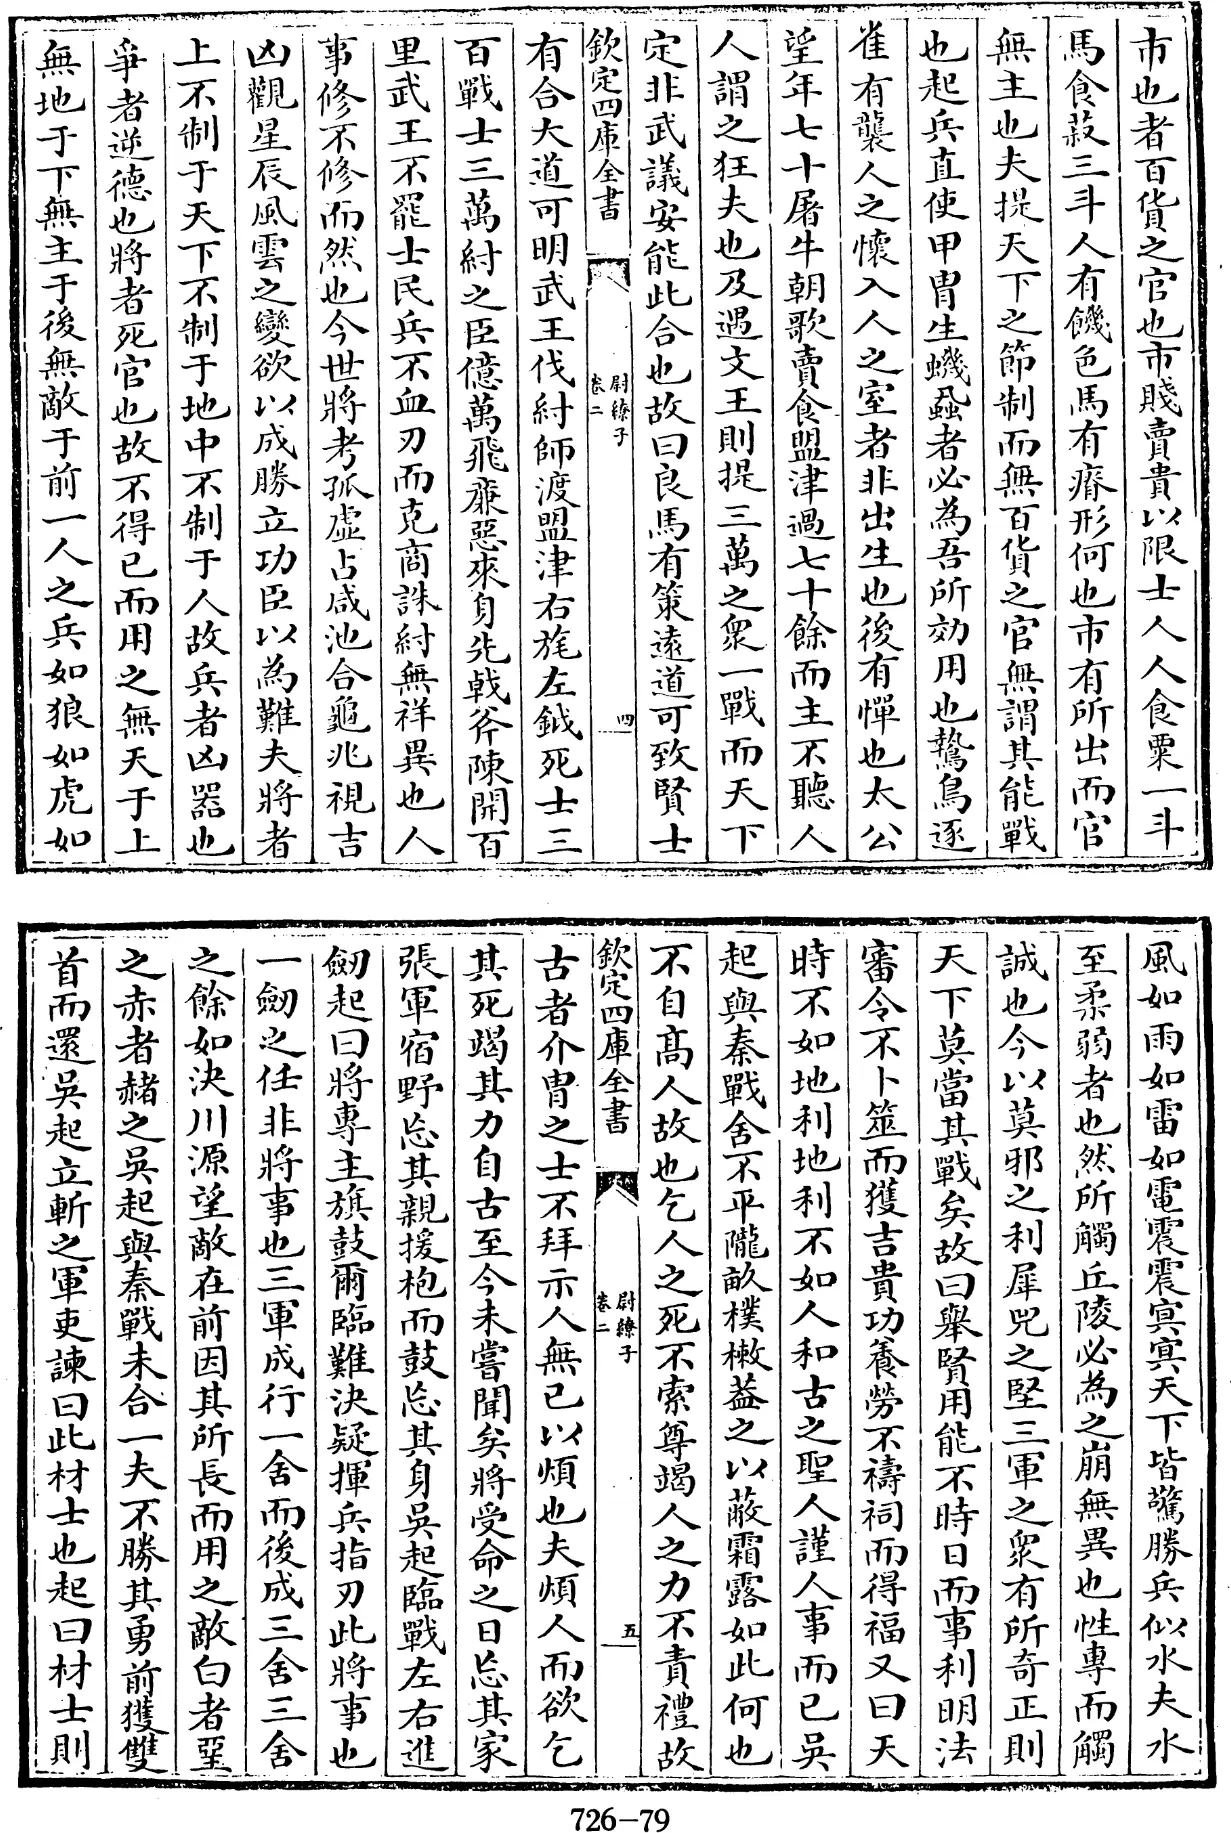 市也者百貨之官也市賤賣貴以限士人人食粟一斗
馬食菽三斗人有饑色馬有瘠形何也市有所出而官
無主也夫提天下之節制而無百貨之官無謂其能戰
也起兵直使甲胄生蟣蝨者必為吾所効用也鷙鳥逐
雀有襲人之懷入人之室者非出生也後有憚也太公
望年七十屠牛朝歌賣食盟津過七十餘而主不聽人
人謂之狂夫也及遇文王則提三萬之衆一戰而天下
定非武議安能此合也故曰良馬有策遠道可致賢士
欽定四庫全書
尉繚子
卷二
四
有合大道可明武王伐紂師渡盟津右旄左鉞死士三
百戰士三萬紂之臣億萬飛廉惡來身先戟斧陳開百
里武王不罷士民兵不血刃而克商誅紂無祥異也人
事修不修而然也今世將考孤虛占咸池合龜兆視吉
凶觀星辰風雲之變欲以成勝立功臣以為難夫將者
上不制于天下不制于地中不制于人故兵者凶器也
爭者逆德也將者死官也故不得已而用之無天于上
無地于下無主于後無敵于前一人之兵如狼如虎如
風如雨如雷如電震震冥冥天下皆驚勝兵似水夫水
至柔弱者也然所觸丘陵必為之崩無異也性專而觸
誠也今以莫邪之利犀兕之堅三軍之衆有所奇正則
天下莫當其戰矣故曰舉賢用能不時日而事利明法
審令不卜筮而獲吉貴功養勞不禱祠而得福又曰天
時不如地利地利不如人和古之聖人謹人事而已吳
起與秦戰舍不平隴畝樸樕葢之以蔽霜露如此何也
不自高人故也乞人之死不索尊竭人之力不責禮故
欽定四庫全書
尉繚子
卷二
五
古者介胄之士不拜示人無已以煩也夫煩人而欲乞
其死竭其力自古至今未嘗聞矣將受命之日忘其家
張軍宿野忘其親援枹而鼓忘其身吳起臨戰左右進
劒起曰將專主旗鼓爾臨難決疑揮兵指刃此將事也
一劒之任非將事也三軍成行一舍而後成三舍三舍
之餘如決川源望敵在前因其所長而用之敵白者堊
之赤者赭之吳起與秦戰未合一夫不勝其勇前獲雙
首而還吳起立斬之軍吏諫曰此材士也起曰材士則
726-79